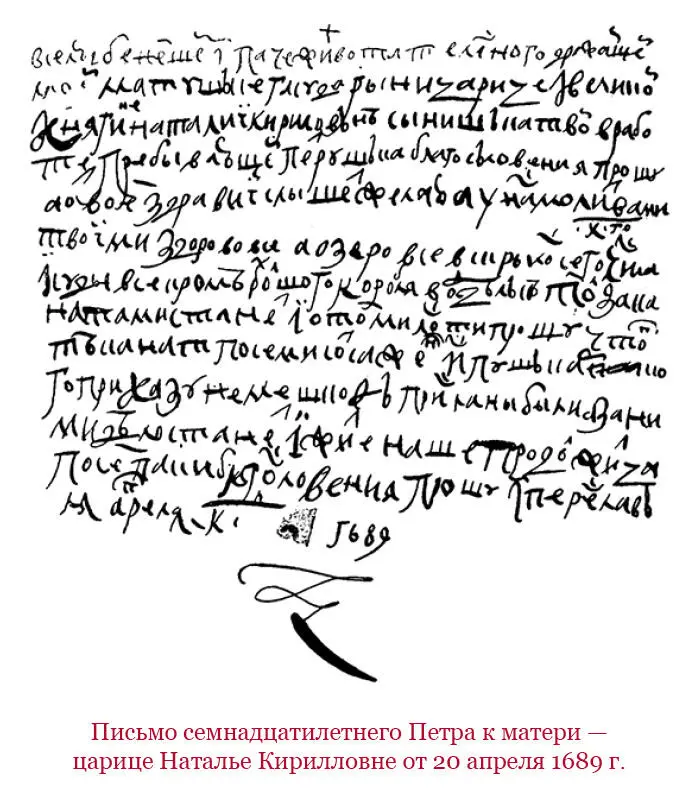 +
вселюбезнейшеi i паче живота телесного дражайшеi
моеi матушъке гасударыни царице i великоi
княгине наталиi кириловънѣ сынишка твоi в рабо
те пребываюъщеi петрушъка благасловения прошу
а о твоем здравиi слышеть желаю а у нас молитвами
твоiми здорово все а озеро все вскрылось сего к чис ла
i суды все кромѣ болшого карабля в отдѣлъке тол за кана
натами станет i о том милости прошу чтоб
тѣ канаты по семисот сажен iс пушъка
го приказу не мешкоф присланы были а за ни
ми дѣло станет i житие наше продолжица
по сем паки благословения прошу iс переславъ
ля апреля к
1689
Письмо семнадцатилетнего Петра к матери —
царице Наталье Кирилловне от 20 апреля 1689 г.